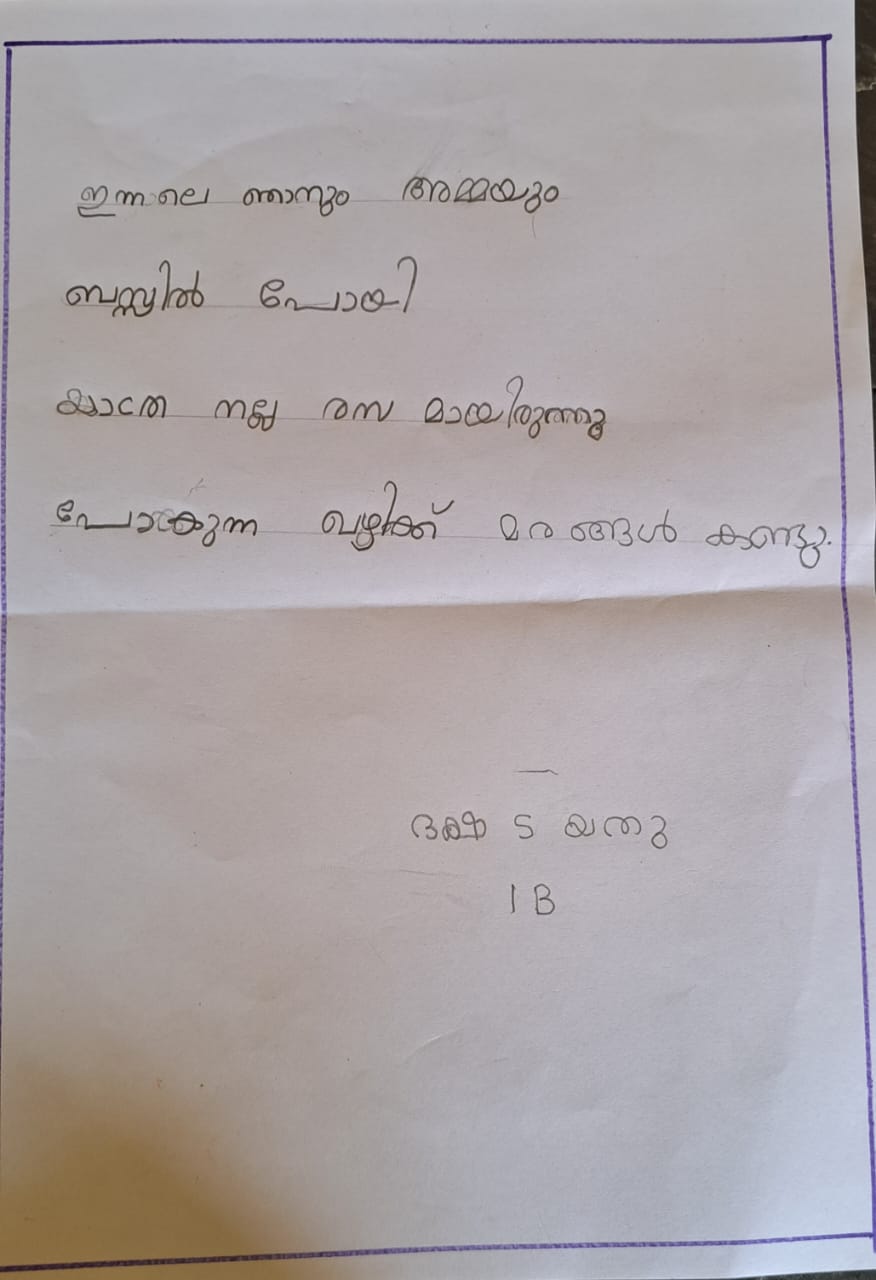 ഇന്നലെ ഞാനും അമ്മയും
ബസ്സിൽ പോയി
യാത്ര നല്ല രസ മായിരുന്നു
പോകുന്ന വഴിക്ക് മരങ്ങൾ കണ്ടു.
യതു
1 B